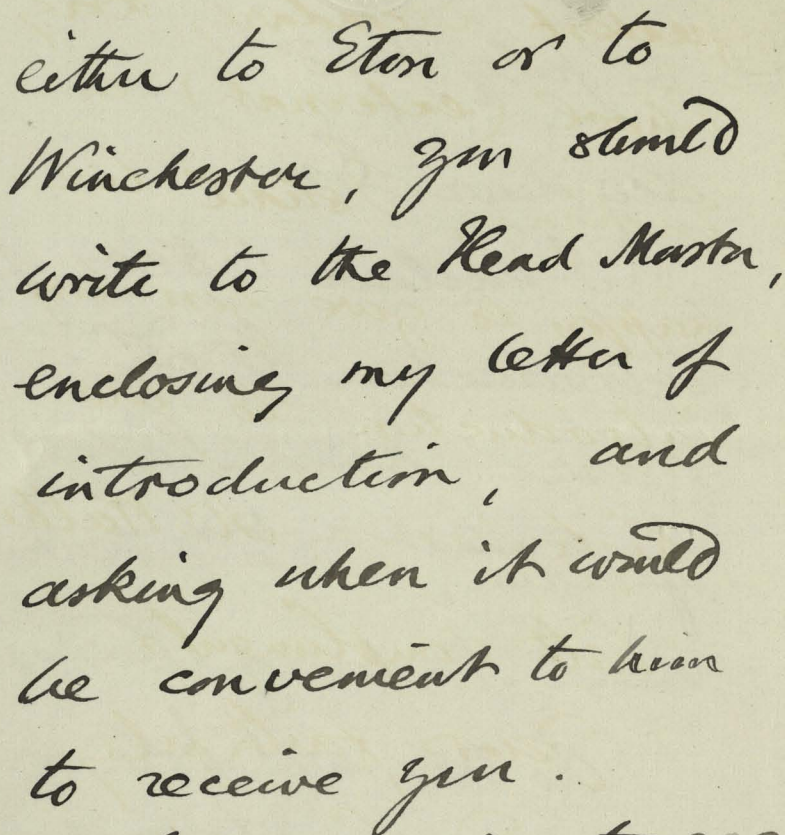 either to Eton or to
Winchester, you should
write to the Head Master,
enclosing my letter of
introduction, and
asking when it would
be convenient to him
to receive you.